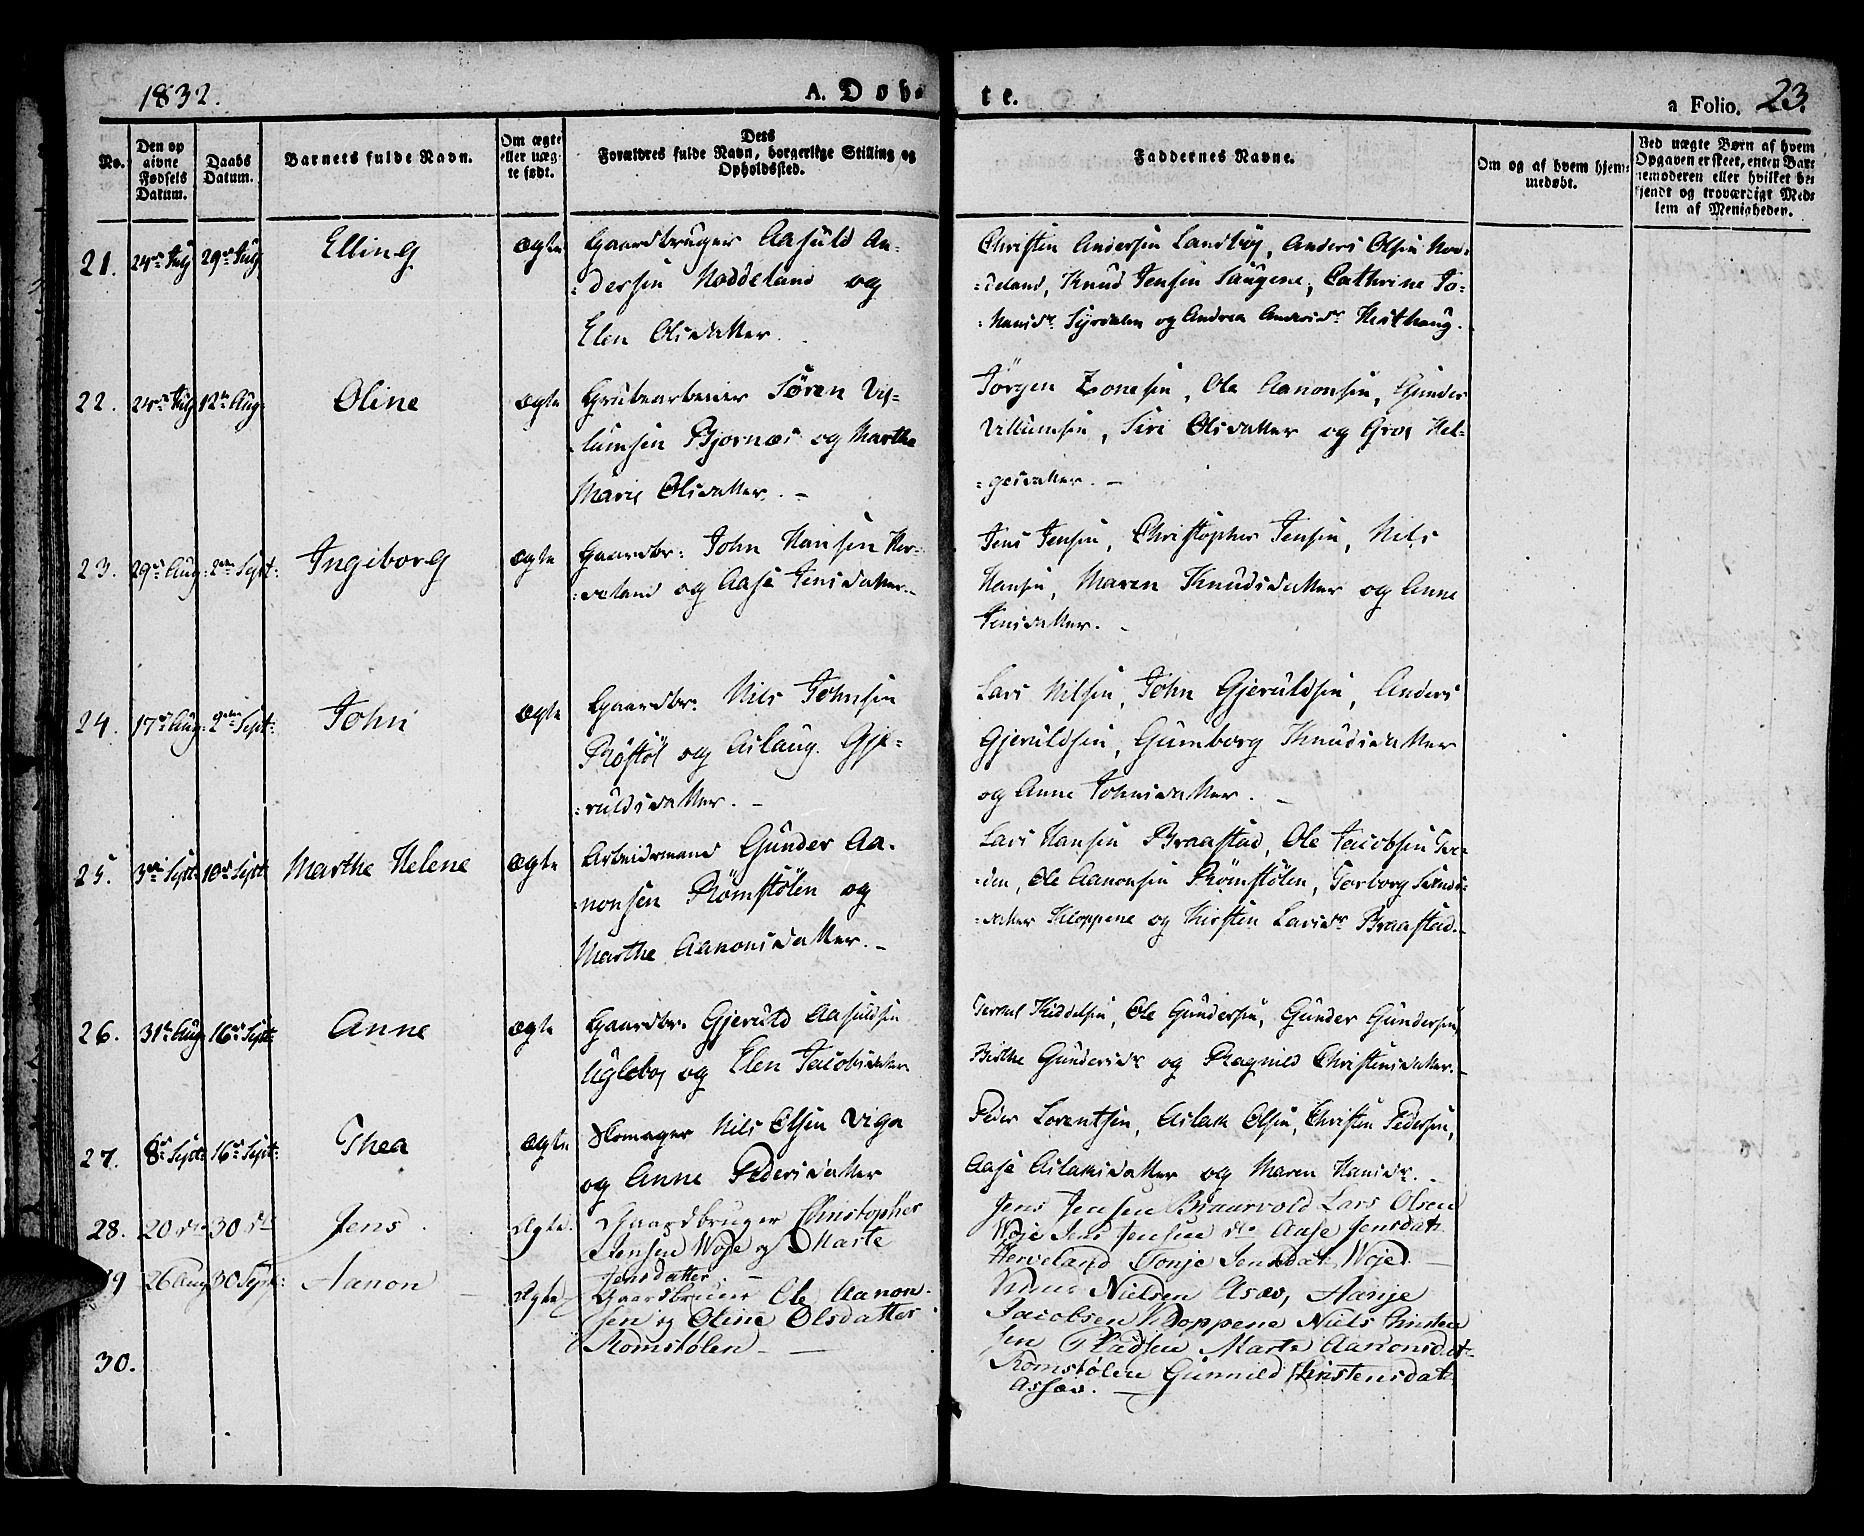 1832.
A. Døbte.
a Folio. 23.
No.
Den op
givne
Fødsels
Datum.
Daabs
Datum.
Barnets fulde Navn.
Om ægte
eller uæg-
te født.
Dets
Forældres fulde Navn, borgerlige Stilling og
Opholdssted.
Faddernes Navne.
Om og af hvem hjem-
medøbt.
Ved uægte Børn af hvem
Opgaven er skeet, enten Bar-
nemoderen eller hvilket be-
kjendt og troværdigt Med-
lem af Menigheden.
21. 24de July 29de July Elling ægte Gaardbruger Aasuld An-
-dersen Noddeland og
Elen Olsdatter.
Christen Andersen Landbög, Anders Olsen Nod-
-deland, Knud Jensen Saugene, Cathrine Jo-
-hansdr Syrdalen og Andrea Andersdr Hesthaug.
22. 24de July 12te Aug: Oline ægte Grubearbeider Søren Vil-
-lumsen Bjornæs og Marthe
Marie Olsdatter. -
Jörgen Zonesen, Ole Aanonsen, Gunder
Villumsen, Siri Olsdatter og Gros Hel-
-gesdatter. -
23. 29de Aug: 2den Sept: Ingeborg ægte Gaardbr: John Hansen Her-
-veland og Aase Jensdatter. -
Jens Jensen, Christopher Jensen, Nils
Hansen, Maren Knudsdatter og Anne
Jensdatter. -
24. 17de Aug: 2den Sept: John ægte Gaardbr. Nils Johnsen
Röstöl og Aslaug Gje-
-ruldsdatter. -
Lars Nilsen, John Gjeruldsen, Anders
Gjeruldsen, Gumborg Knudsdatter
og Anne Johnsdatter. -
25. 3die Sept: 10de Sept Marthe Helene ægte Arbeidsmand Gunder Aa-
-nonsen Römstölen og
Marthe Aanonsdatter. -
Lars Hansen Braastad, Ole Jacobsen
-den, Ole Aanonsen Römstölen, Torborg
-datter Kloppene og Kirsten Larsdr Braastad. -
26. 31te Aug: 16de Sept: Anne ægte Gaardbr. Gjeruld Aasuldsen
Uglebog og Elen Jacobsdatter
Terkel Kiddelsen, Ole Gundersen, Gunder Gundersen,
Birthe Gundersdr og Ragnild Christensdatter. -
27. 8de Sept: 16de Sept: Thea ægte Skomager Nils Olsen Viga
og Anne Pedersdatter
Peder Lorentsen, Aslak Olsen, Christen Pedersen,
Aase Aslaksdatter og Maren Hansdr. -
28. 20 de 30 de Jens. Ægte. Gaardbruger Christopher
Jensen Woje og Marte
Jensdatter -
Jens Jensen Braarvold Lars Olsen
Woje Jens Jensen de Aase Jensdat.
Herveland Tonje Jensdat Woje. -
29 26 Aug 30 Sept: Aanon - Ægte Gaardbruger Ole Aanon-
sen og Oline Olsdatter
Romstølen - -
Knud Nielsen Asæv, Aanje
Jacobsen Kloppene Niels Christen
sen Pladsen Marte Aanonsdat-
Romstølen Gunnild Kirstensdat.
Assæv. -
30.